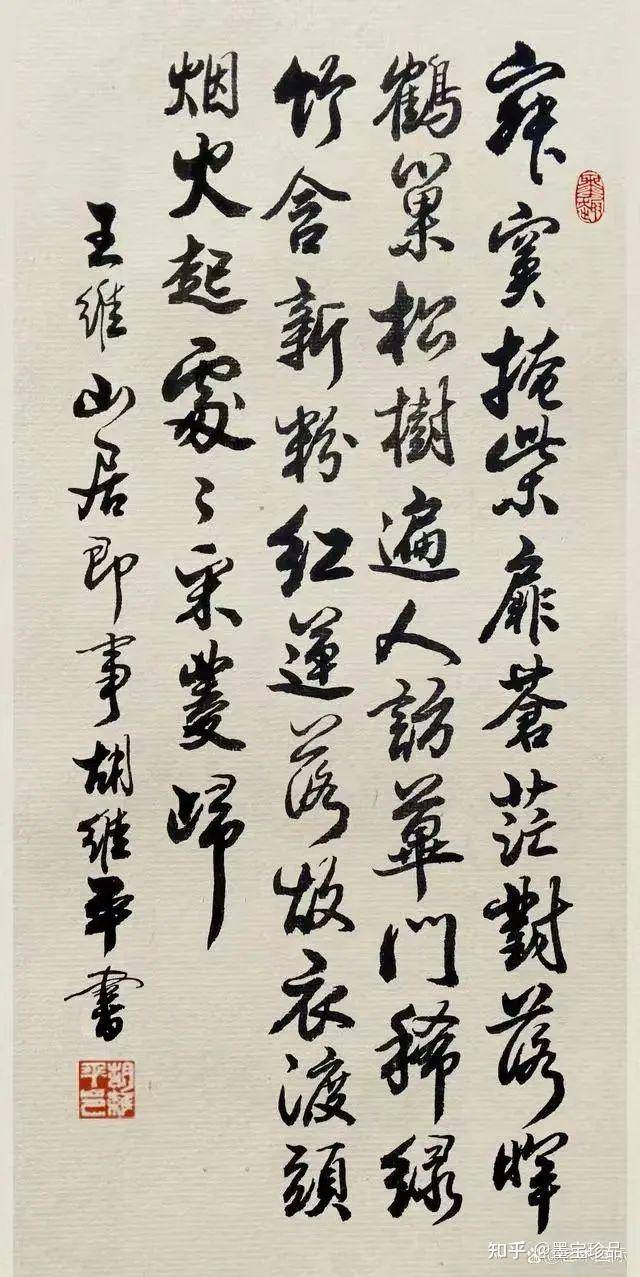 寂寞掩柴扉蒼茫對落暉
鶴巢松樹遍人訪蓽門稀緑
竹含新粉紅蓮落故衣渡頭
烟火起處〻采菱歸
王維山居即事胡維平書
知乎 @墨宝珍品